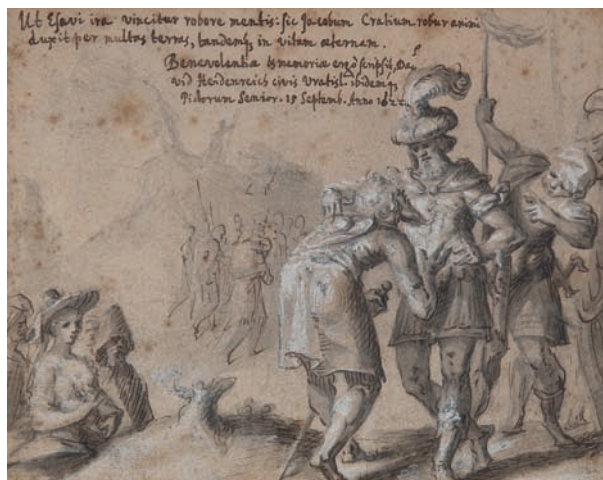 Ut Esavi ira vincitur robore mentis: sic Jacobum Cratium robur animi
duxit per multas terras, tandemq; in vitam æternam.
Benevolentiæ & memoriæ ergò scripsit, Da,
vid Heidenreich civis Vratisl. ibidemq;
Pictorum Senior. 15 Septemb. Anno